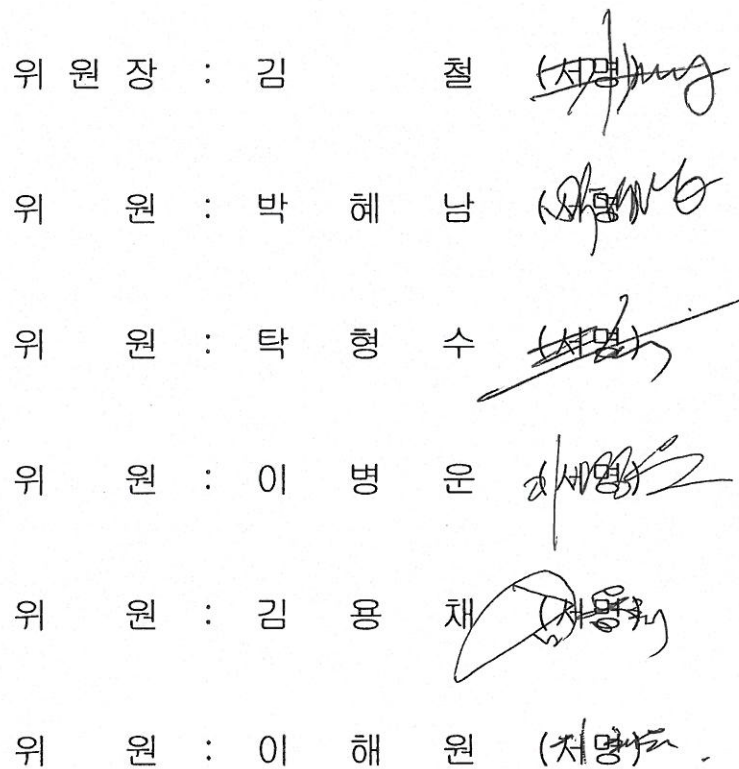 위 원 장 : 김 철 (서명)
위 원 : 박 혜 남 (서명)
위 원 : 탁 형 수 (서명)
위 원 : 이 병 운 (서명)
위 원 : 김 용 채 (서명)
위 원 : 이 해 원 (서명)